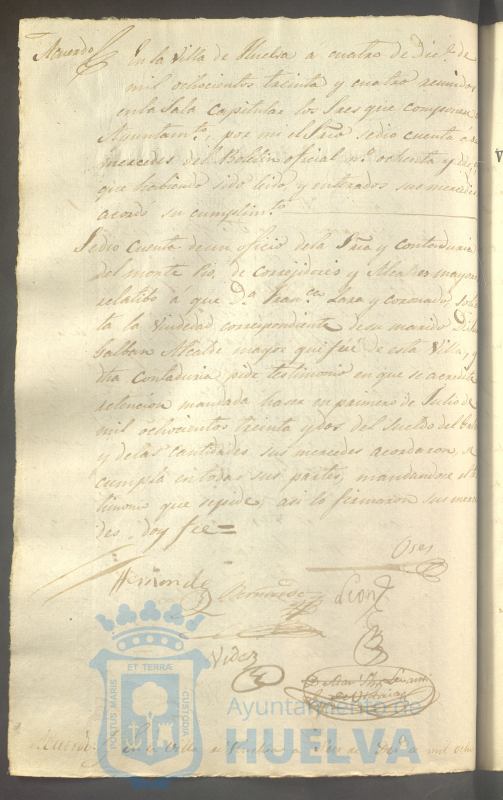 Acuerdo
En la Villa de Huelva a cuatro de Dice. de
mil ochocientos treinta y cuatro reunidos
en la Sala Capitular los Sres que componen
Ayuntamto., por mi el Srio se dio cuenta a sus
mercedes del Boletin oficial no. ochenta y
que habiendo sido leido, y enterados sus mercedes
acordó su cumplimto.
Se dio cuenta de un oficio de la Sria y contaduria
del monte Pio, de corregidores y Alcaldes mayores
relatibo á que Da. Franca. Lara y coronado, soli
ta la viudedad correspondiente de su marido Dn
Galban Alcalde mayor que fué de esta Villa, y
dha contaduria pide testimonio en que se acredite
retencion mandada hacer en primero de Julio de
mil ochocientos treinta y dos del sueldo del
y de las cantidades, sus mercedes acordaron, se
cumpla en todas sus partes, mandandose el tes
timonio que se pide, asi lo firmaron sus merce
des. doy fee=
Oses
Hernandez
Bermudez
Leon
Vides
PORTUS MARIS
ET TERRÆ
CUSTODIA
Ayuntamiento de
HUELVA
Acuerdo
En la Villa de Huelva a Seis de de mil ocho